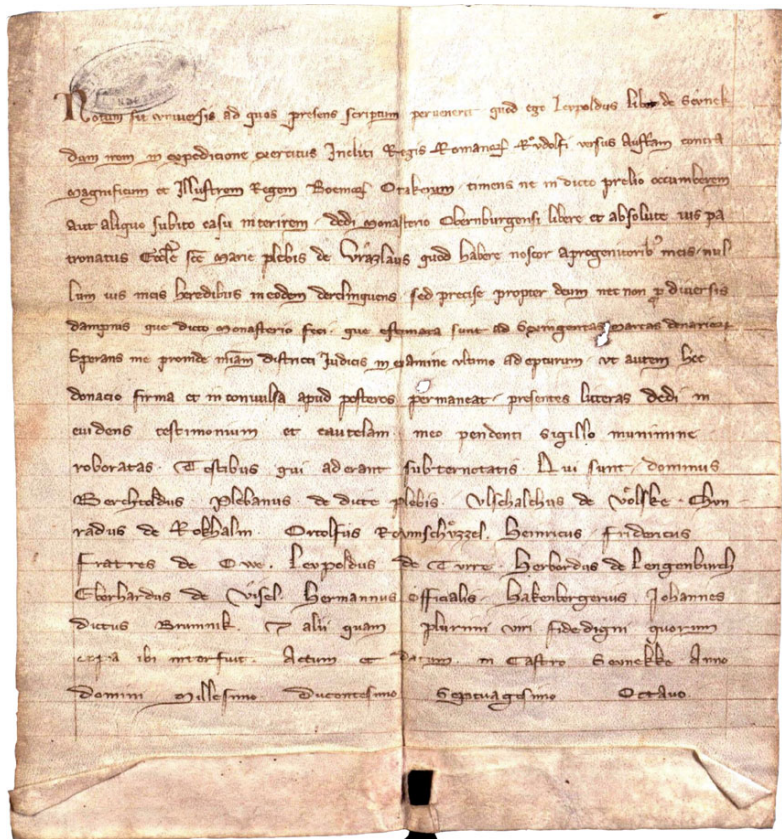 Notum sit universis ad quos presens scriptum pervenerit quod ego Levpoldus liber de Sevnek
dum irem in expedicione exercitus Incliti Regis Romanor Rvdolfi versus Austriam contra
magnificum et Illustrem Regem Boemor Otakerum timens ne in dicto prelio occumberem
aut aliquo subito casu interirem dedi monasterio Obernburgensi libere et absolute ius pa
tronatus Eccle sce Marie plebis de Vrazlaus quod habere noscor a progenitorib meis nul
lum ius meis heredibus in eodem derelinquens sed precise propter deum nec non p diversis
dampnis que dicto monasterio feci que estimata sunt ad marcas denarior
Sperans me proinde miam districti Judicis in examine ultimo adepturum ut autem hec
donacio firma et in convulsa apud posteros permaneat presentes litteras dedi in
evidens testimonium et cautelam meo pendenti sigillo munimine
roboratas Testibus qui aderant subternotatis Qui sunt dominus
Berchtoldus Plebanus de dicte plebis Vlschalchus de Volske Chvn
radus de Rokhalm Ortolfus Heinricus Fridericus
Fratres de Owe Levpoldus de Turre Herbordus de Lengenburch
Eberhardus de Visel Hermannus officialis Hakenbergerius Johannes
dictus Brumnik 7 alii quam plurimi viri fide digni quorum
copia ibi interfuit Actum et datum in Castro Sevnekke Anno
domini Millesimo Ducentesimo Septuagesimo Octavo